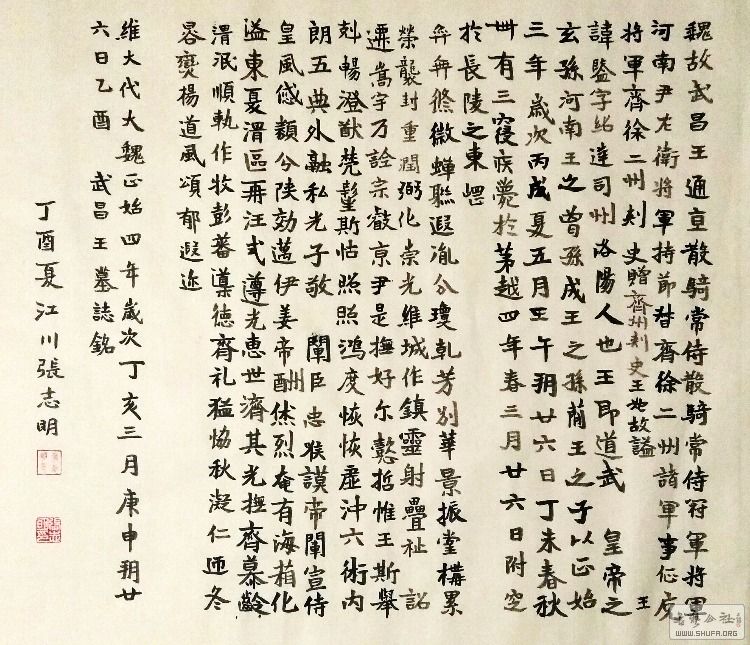 魏故武昌王通直散騎常侍散騎常侍冠軍將軍
河南尹左衛將軍持節督齊徐二州諸軍事征虜
將軍齊徐二州刺史贈齊州刺史王如故謚 王
諱鑒字紹達司州洛陽人也王即道武 皇帝之
玄孫河南王之曾孫成王之孫簡王之子以正始
三年歲次丙戌夏五月壬午朔廿六日丁未春秋
卌有三寢疾薨於第越四年春三月廿六日附空
於長陵之東堈
弈弈儵微蟬聯遐胤分瓊乹芳別華景振堂構累
榮襲封重潤弼化崇光維城作鎮靈射疊祉 詔
遷嵩宇乃詮宗叡京尹是撫好尔懿哲惟王斯舉
剋暢澄猷煢鬈斯怙照照鴻度恢恢虛沖六術內
朗五典外融私光子敬 闡臣忠猴謨帝闈宣侍
皇風傚纇分陝効邁伊姜帝酬休烈奄有海葙化
溢東夏渭區再汪式遵光惠世濟其光撫齊慕齡
渭泯順軌作牧彭蕃遵德齊礼猛協秋凝仁迊冬
晷爕楊道風頌郁遐迩
維大代大魏正始四年歲次丁亥三月庚申朔廿
六日乙酉 武昌王墓誌銘
丁酉夏江川張志明
書法公社
WWW.SHUFA.ORG